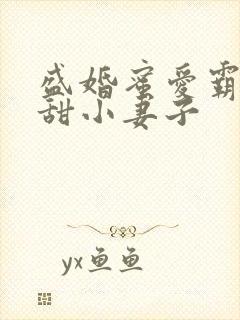 盛婚蜜愛霸
甜小妻子
yx鱼鱼